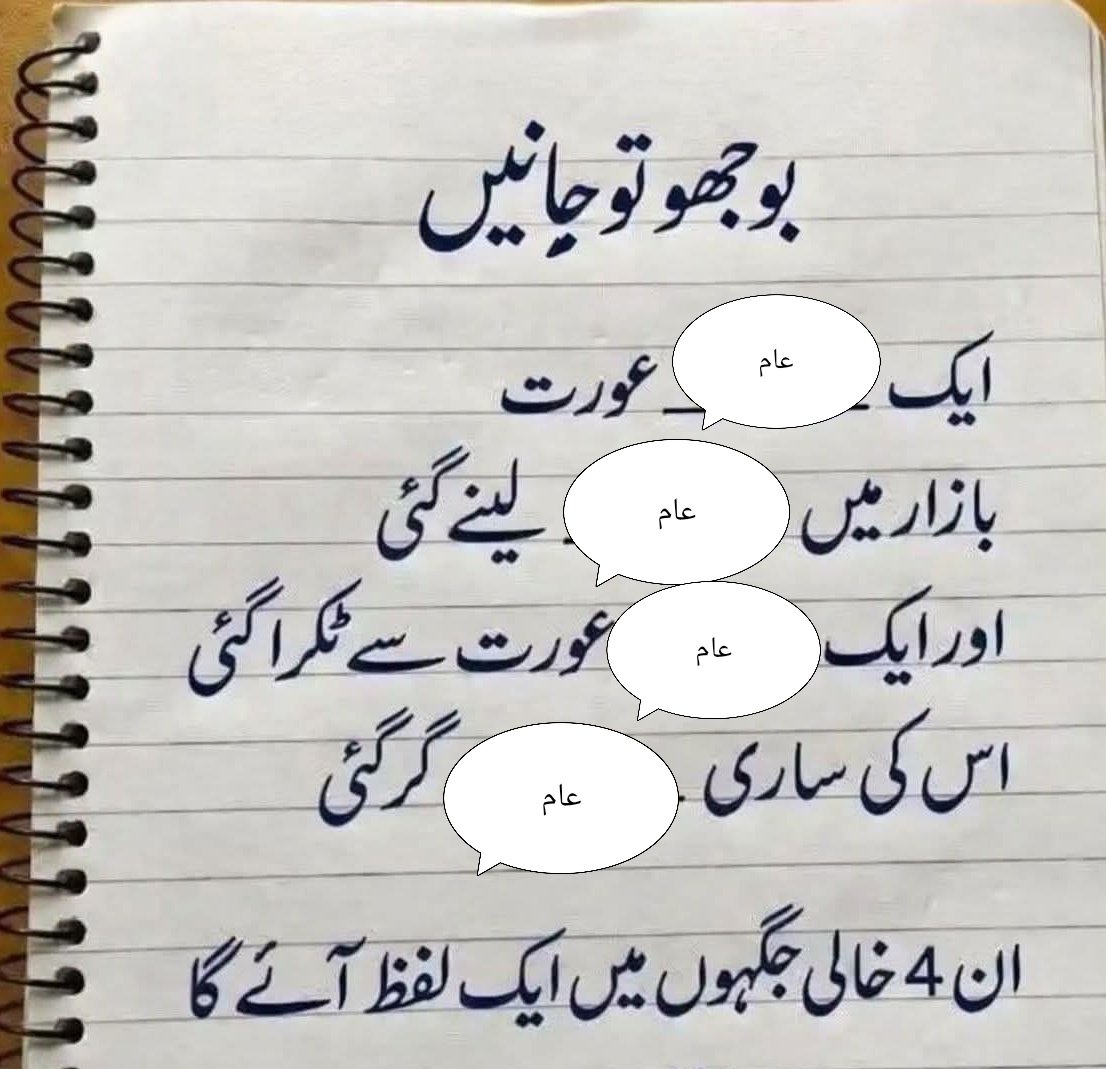 بوجھو تو جانیں
ایک عام عورت
بازار میں عام لینے گئی
اور ایک عام عورت سے ٹکرا گئی
اس کی ساری عام گر گئی
ان 4 خالی جگہوں میں ایک لفظ آئے گا